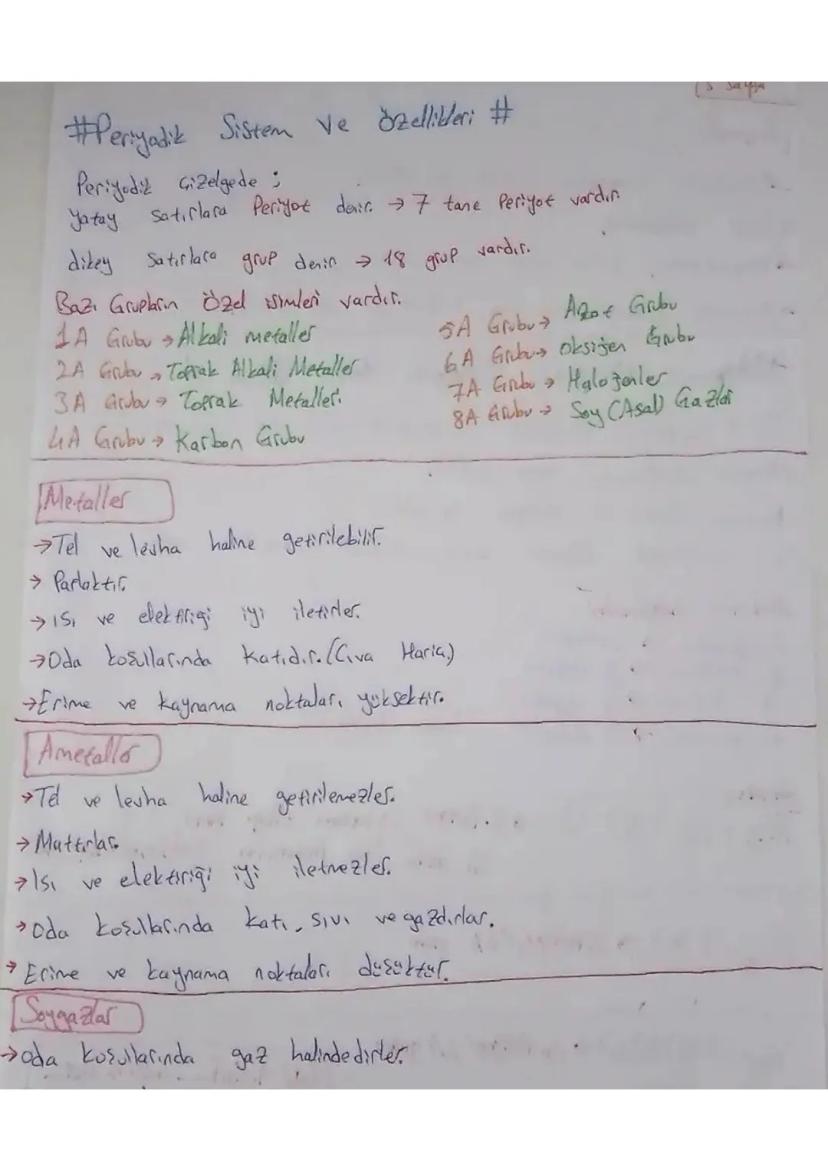 #Periyodik Sistem ve özellikleri #
Periyodik çizelgede ;
yatay satırlara Periyot denir. → 7 tane Periyot vardır.
dikey satırlara grup denir → 18 grup vardır.
Bazı Grupların özel isimleri vardır.
1A Grubu → Alkali metaller
2A Grubu → Toprak Alkali Metaller
3A Grubu → Toprak Metalleri
4A Grubu → Karbon Grubu
5A Grubu → Azot Grubu
6A Grubu → Oksijen Grubu
7A Grubu → Halojenler
8A Grubu → Soy (Asal) Gazlar
Metaller
→ Tel ve levha haline getirilebilir.
→ Parlaktır.
→ ısı ve elektirigi iyi iletirler.
→ Oda koşullarında katıdır. (Cıva Hariç)
→ Erime ve kaynama noktaları yüksektir.
Ametaller
→ Tel ve levha haline getirilemezler.
→ Mattırlar.
→ Isı ve elektiriği iyi iletmezler.
→ Oda koşullarında katı, sıvı ve gazdırlar.
→ Erime ve kaynama noktaları düşüktür.
Soygazlar
→ Oda koşullarında gaz halindedirler.